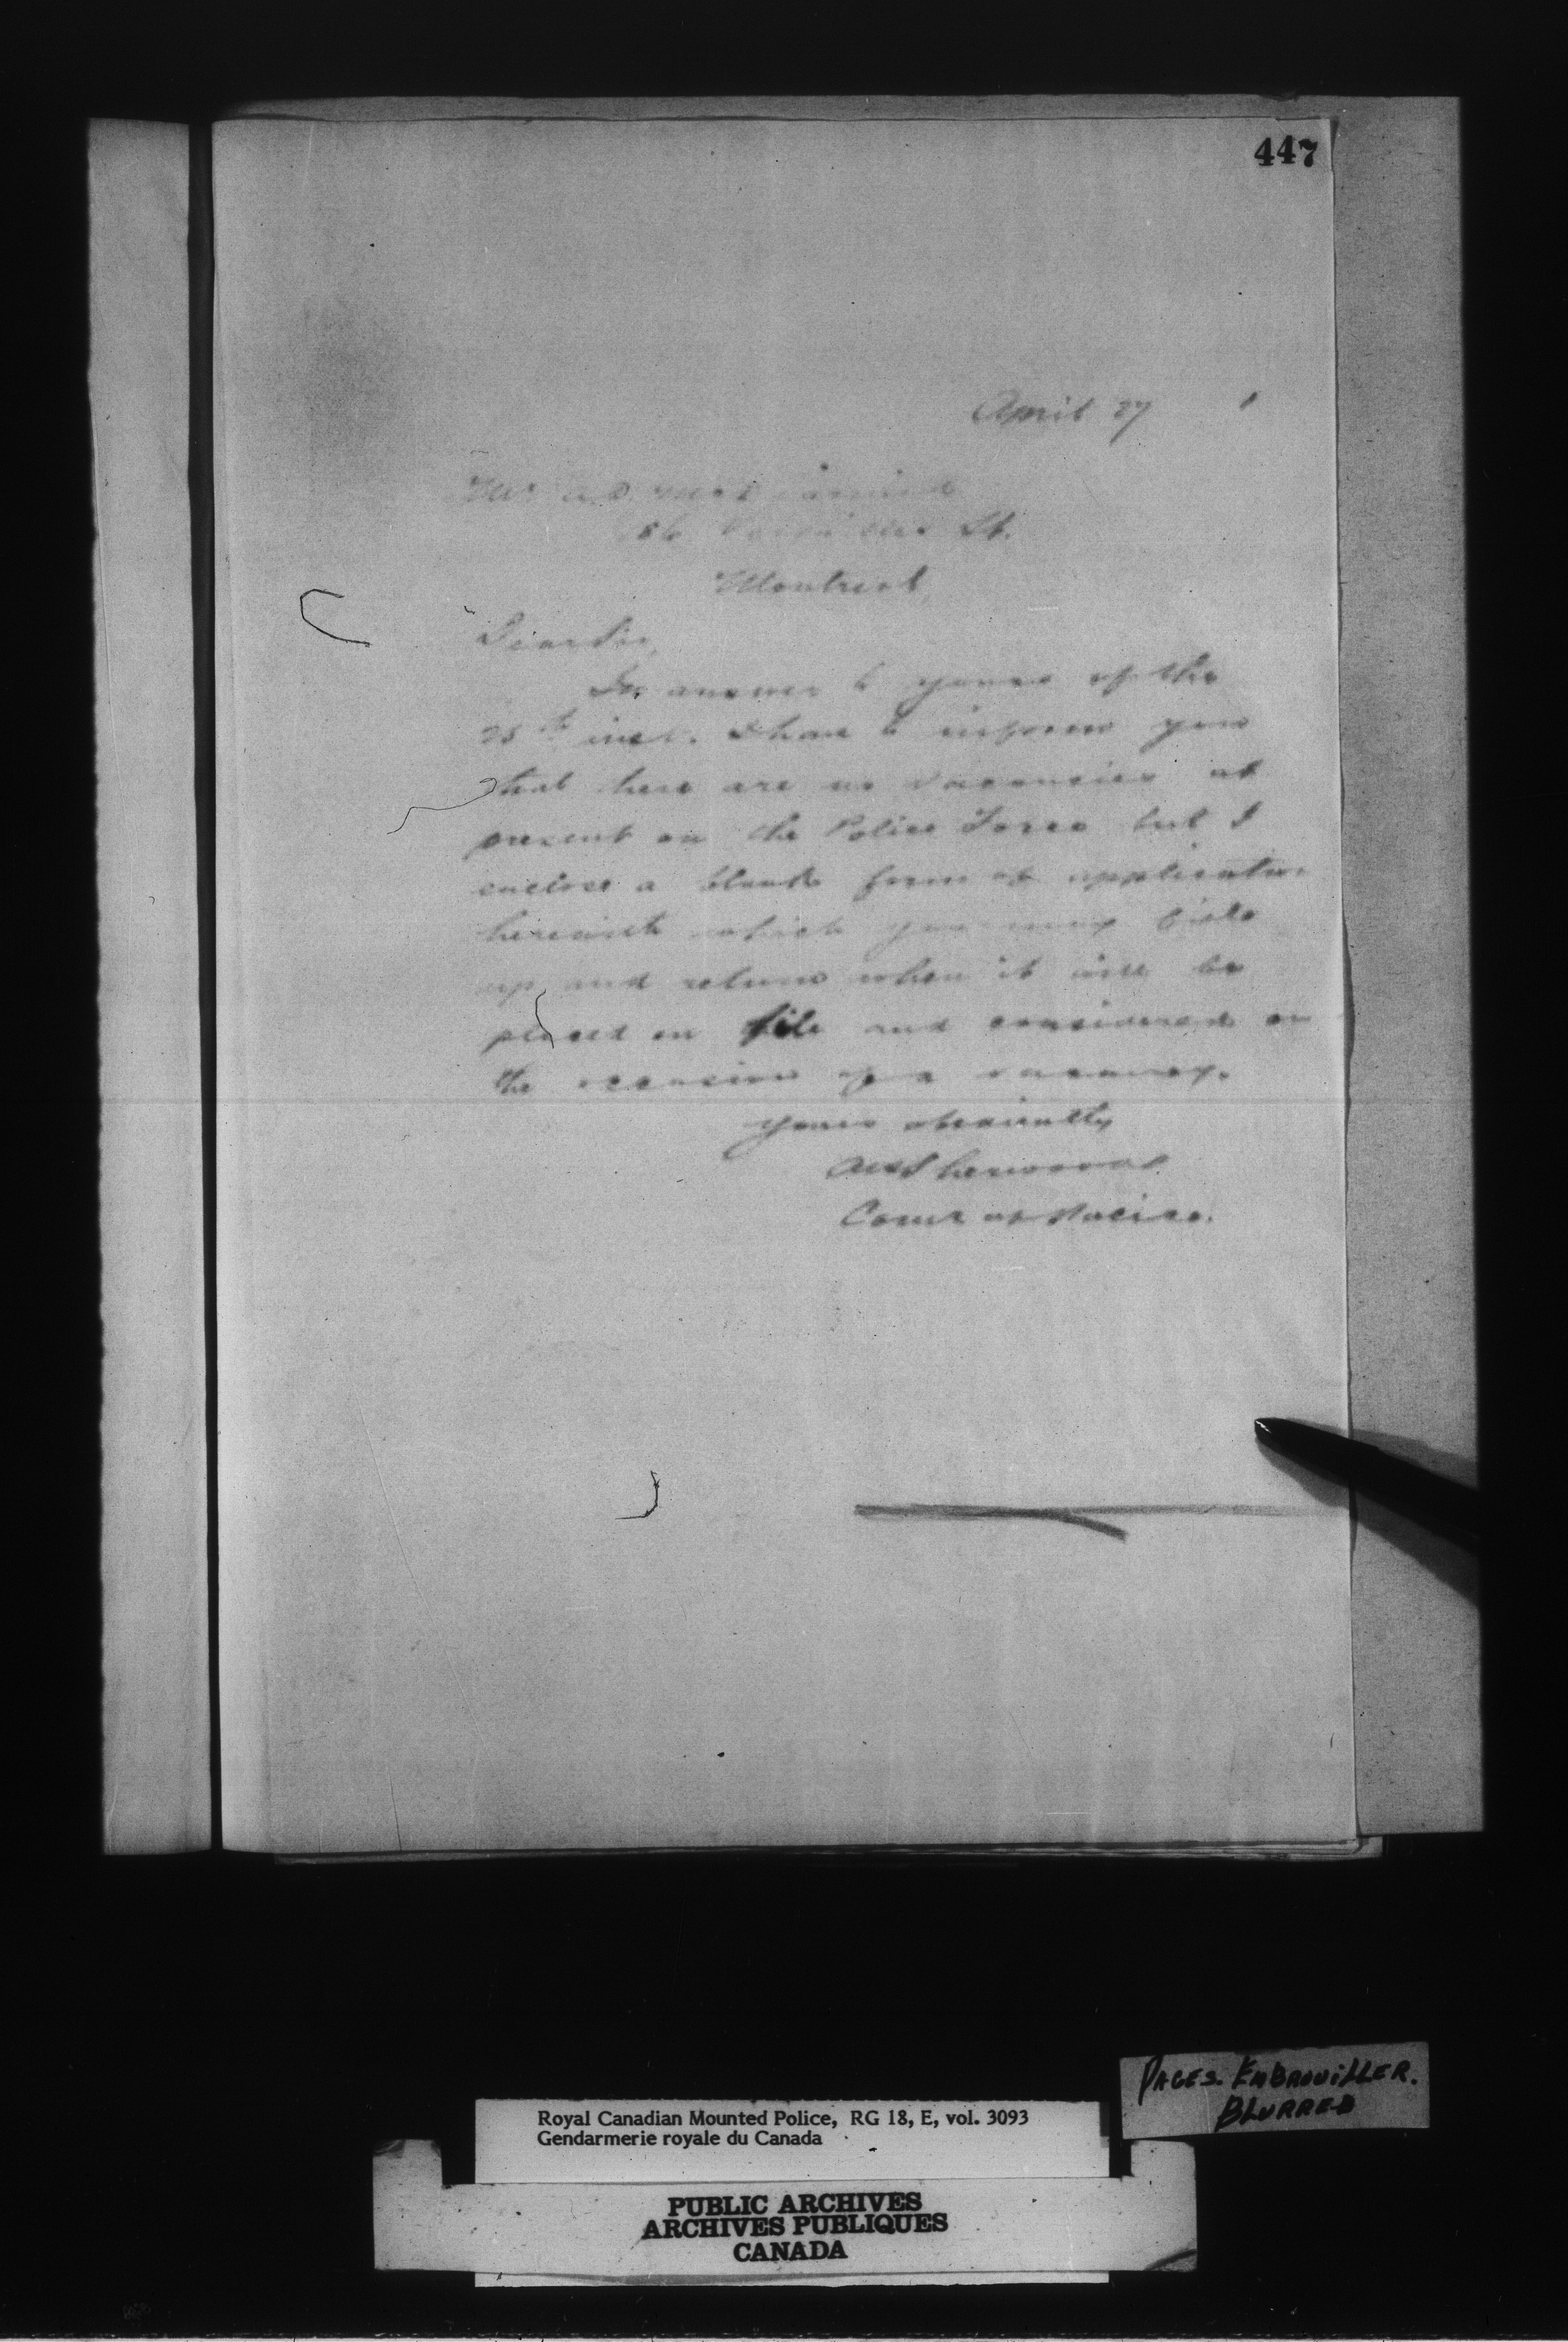 447
April 27 1
Mr. A. D.
86 St.
Montreal,
Dear Sir,
In answer to yours of the
25th inst. I have to inform you
that there are no vacancies at
present on the Police Force but I
enclose a blank form of application
herewith which you may fill
up and return when it will be
placed on file and considered on
the occasion of a vacancy.
Yours obediently
AP Sherwood
Comr of Police.
Royal Canadian Mounted Police, RG 18, E, vol. 3093
Gendarmerie royale du Canada
PAGES. EMBROUILLER.
BLURRED
PUBLIC ARCHIVES
ARCHIVES PUBLIQUES
CANADA